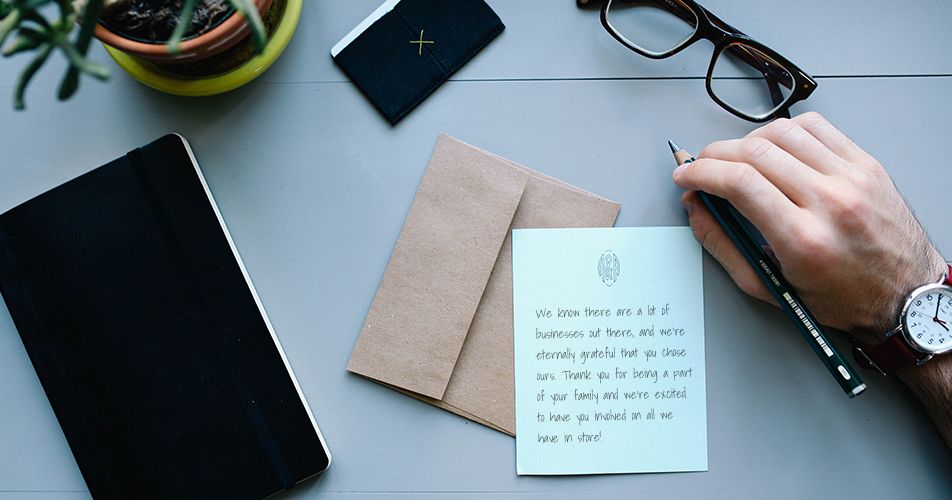 We know there are a lot of
businesses out there, and we're
eternally grateful that you chose
ours. Thank you for being a part
of your family and we're excited
to have you involved on all we
have in store!